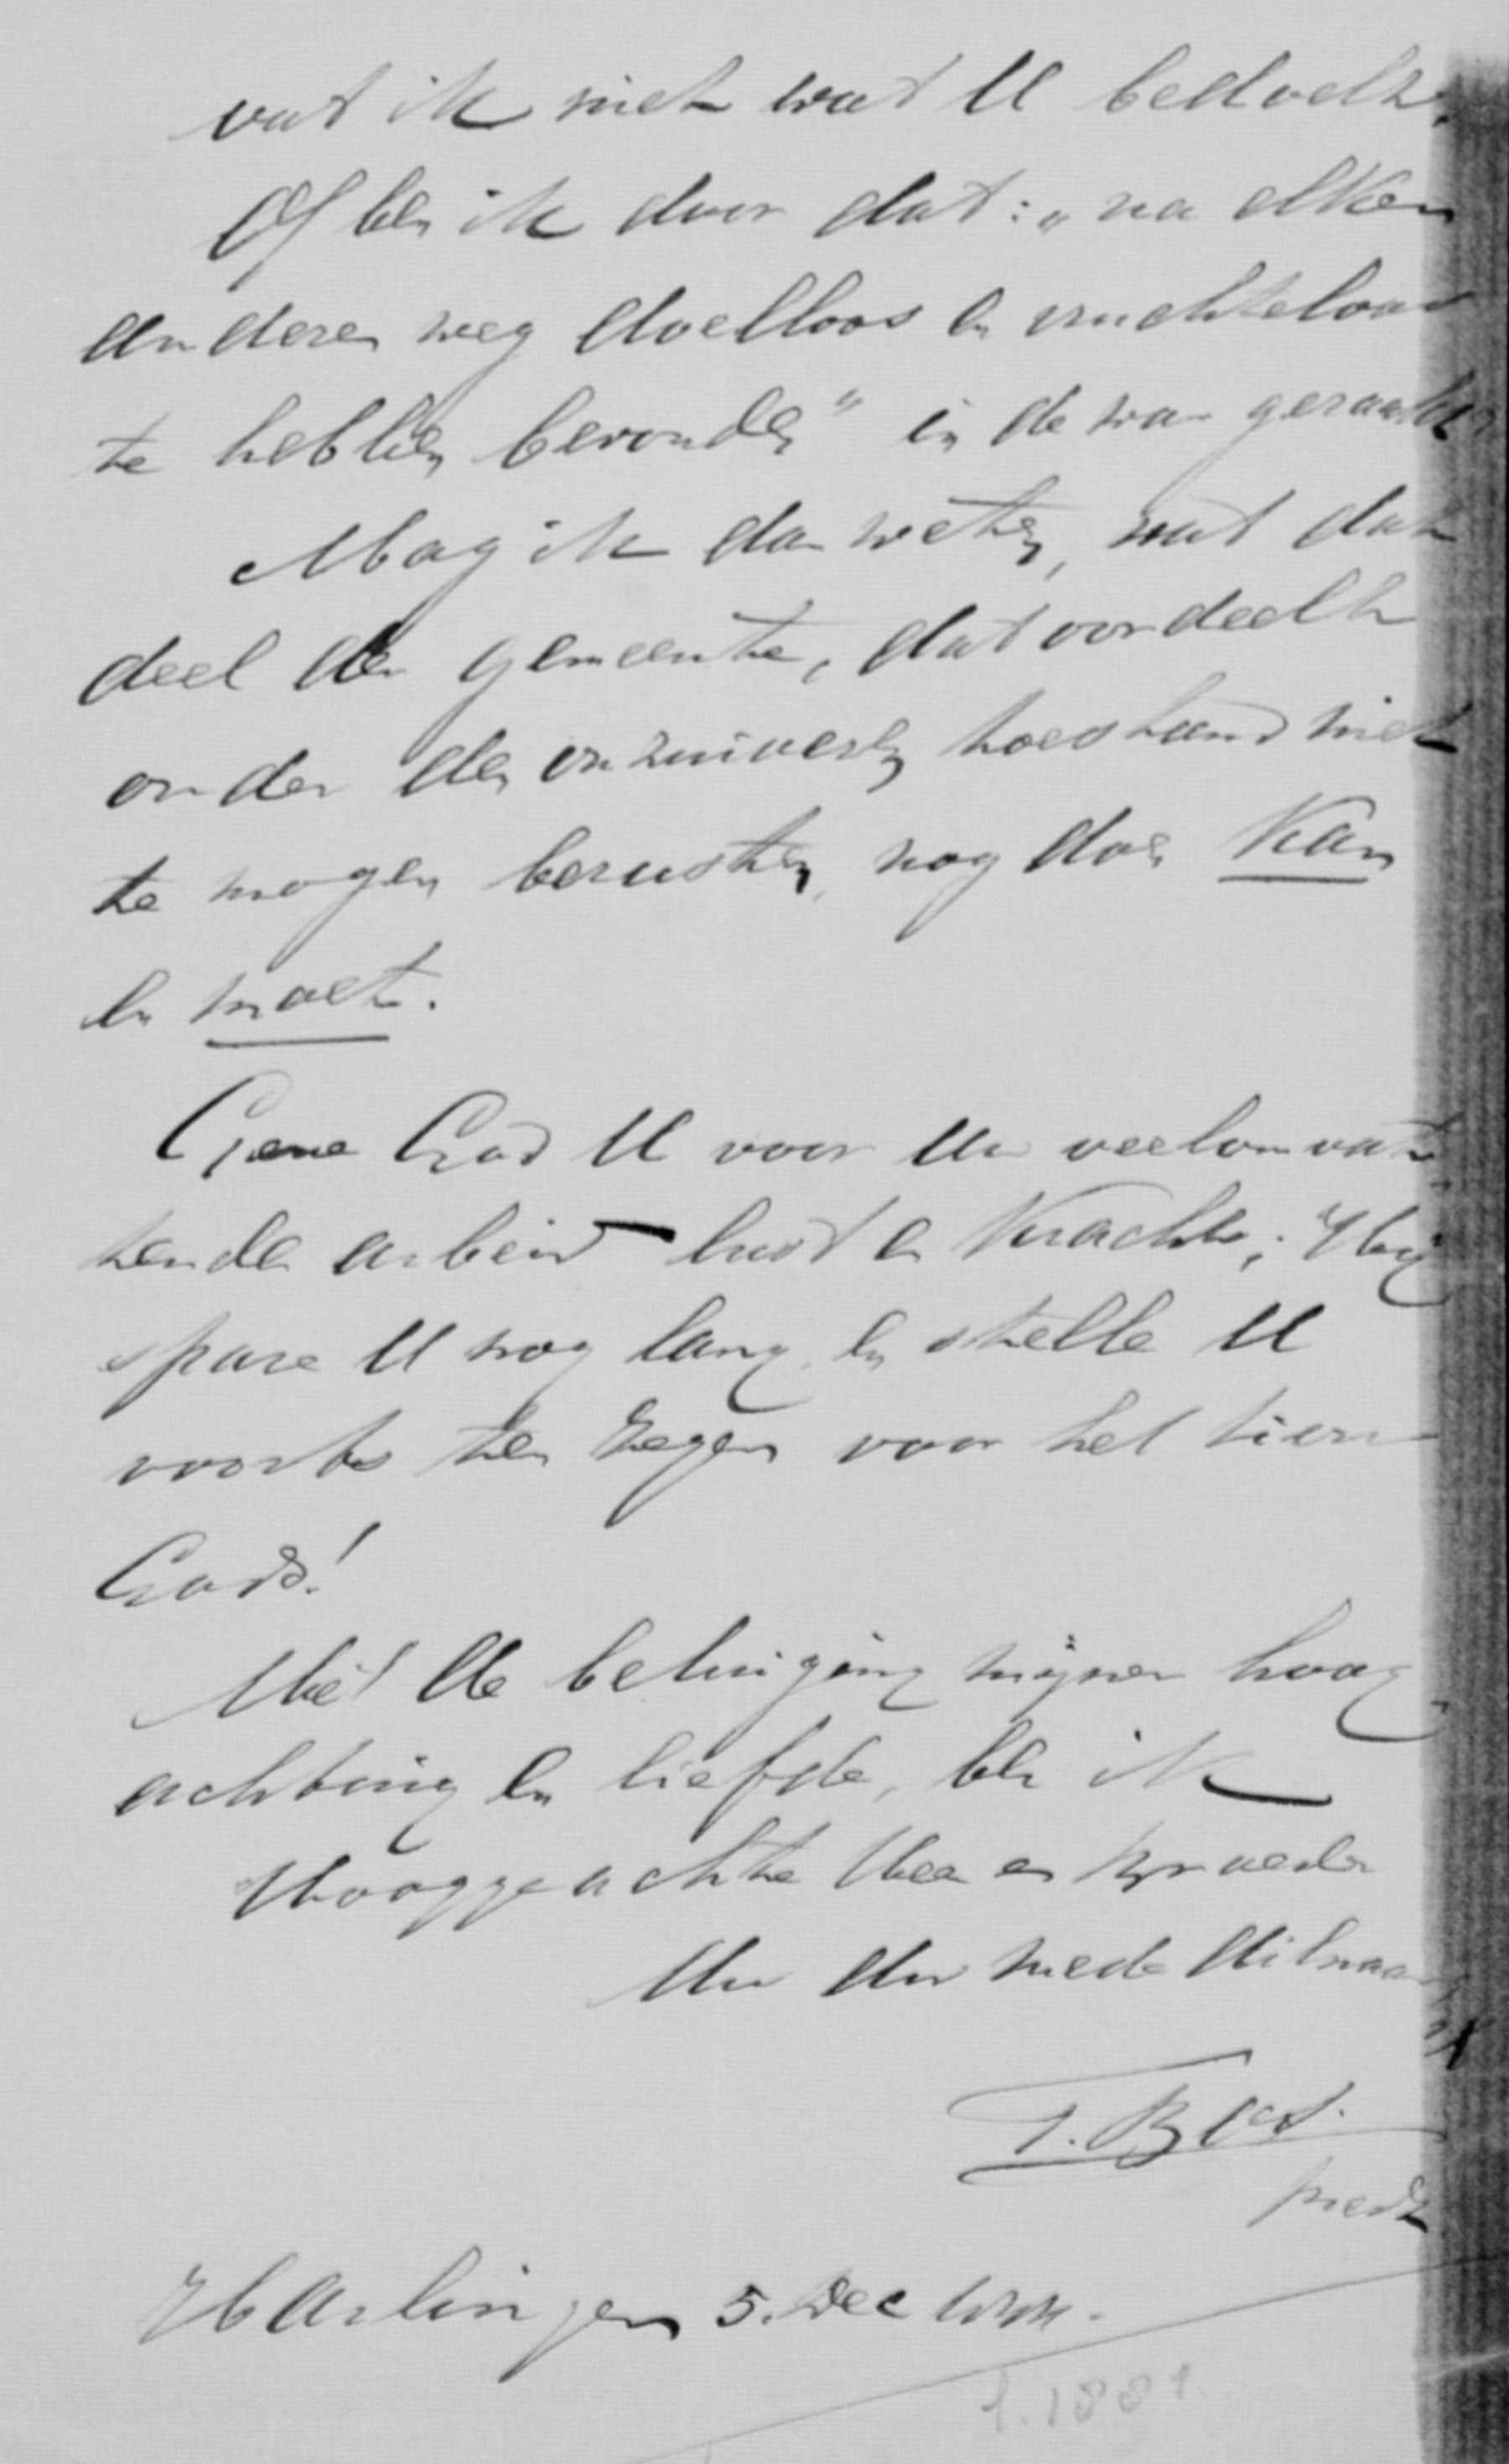 vat ik niet wat U bedoelt.
Of ben ik door dat: „na elken
anderen weg doelloos en vruchteloos
te hebben bevonden" in de war geraakt?
Mag ik dan weten, wat dat
deel der gemeente, dat oordeelt
onder den onzuiveren toestand niet
te mogen berusten, nog doen kan
en moet.
Geve God U voor Uw veelomvat-
tenden arbeid lust en kracht; Hij
spare U nog lang, en stelle U
voorts ten zegen voor het Sion
Gods!
Met de betuiging mijner hoog-
achting en liefde, ben ik
Hooggeachte Heer en Broeder
Uw dw mededienaar
T. Bos.
predt
Harlingen 5. Dec
1.1881